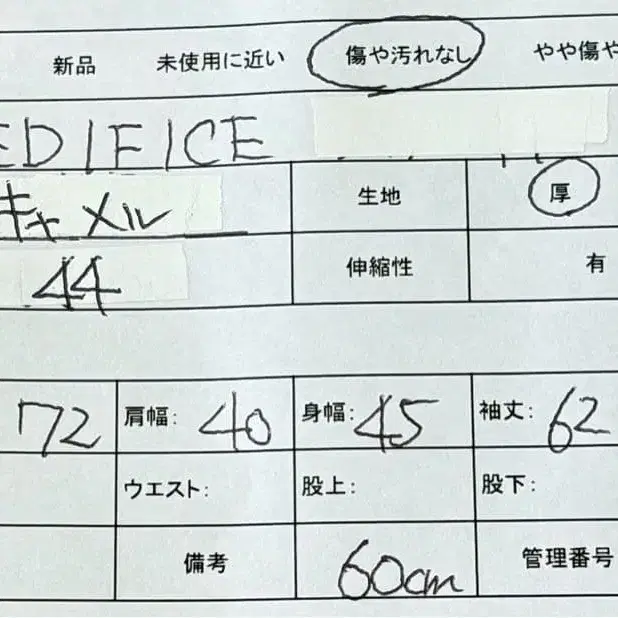 新品 未使用に近い 傷や汚れなし やや傷や
EDIFICE
キャメル 生地 厚
44 伸縮性 有
72 肩幅: 40 身幅: 45 袖丈: 62
ウエスト: 股上: 股下:
備考 60cm 管理番号